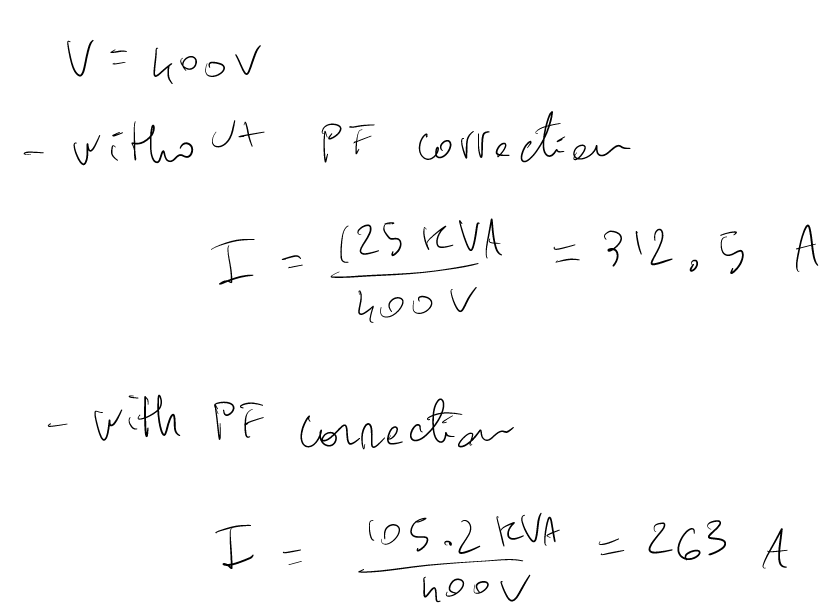 V = 400V
- without PF correction
I = 125 KVA / 400V = 312.5 A
- with PF correction
I = 105.2 KVA / 400V = 263 A